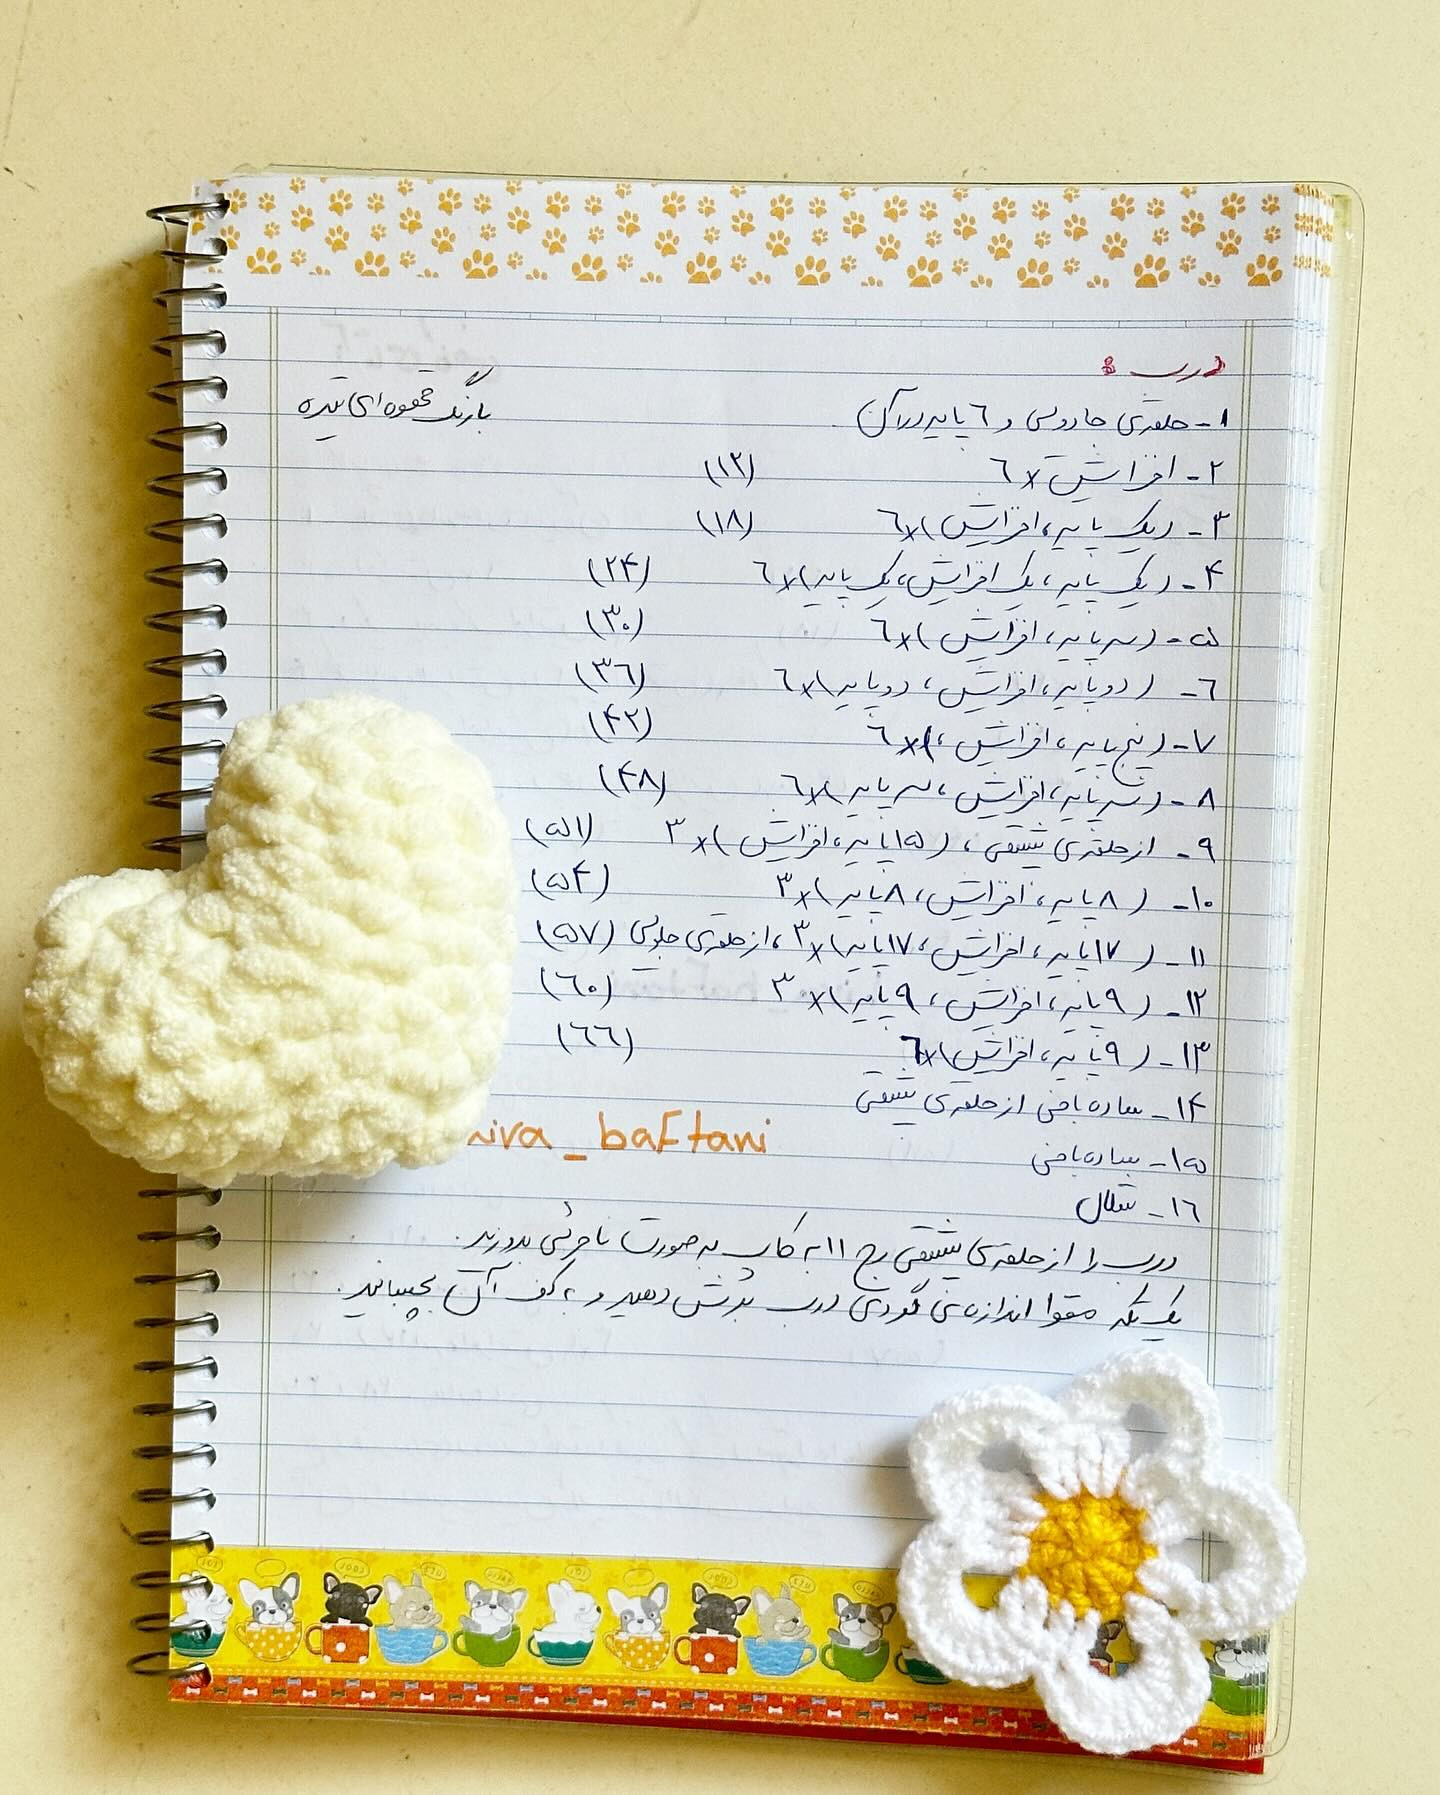 درب :
۱- حلقه‌ی جادویی و ۶ پایه در آن با رنگ قهوه‌ای تیره
۲- افزایش ×۶ (۱۲)
۳- (یک پایه، افزایش)×۶ (۱۸)
۴- (یک پایه، یک افزایش، یک پایه)×۶ (۲۴)
۵- (سه پایه، افزایش)×۶ (۳۰)
۶- (دو پایه، افزایش، دو پایه)×۶ (۳۶)
۷- (پنج پایه، افزایش،)×۶ (۴۲)
۸- (سه پایه، افزایش، سه پایه)×۶ (۴۸)
۹- از حلقه‌ی پشتی، (۱۵ پایه، افزایش)×۳ (۵۱)
۱۰- (۸ پایه، افزایش، ۸ پایه)×۳ (۵۴)
۱۱- (۱۷ پایه، افزایش، ۱۷ پایه)×۳، از حلقه‌ی جلویی (۵۷)
۱۲- (۹ پایه، افزایش، ۹ پایه)×۳ (۶۰)
۱۳- (۹ پایه، افزایش)×۶ (۶۶)
۱۴- ساده بافی از حلقه‌ی پشتی
niva_baftani
۱۵- ساده بافی
۱۶- شلال
درب را از حلقه‌ی پشتی رج ۱۱ به کاپ به صورت نامرئی بدوزید.
یک تکه مقوا اندازه‌ی گودی درب برش دهید و به کف آن بچسبانید.